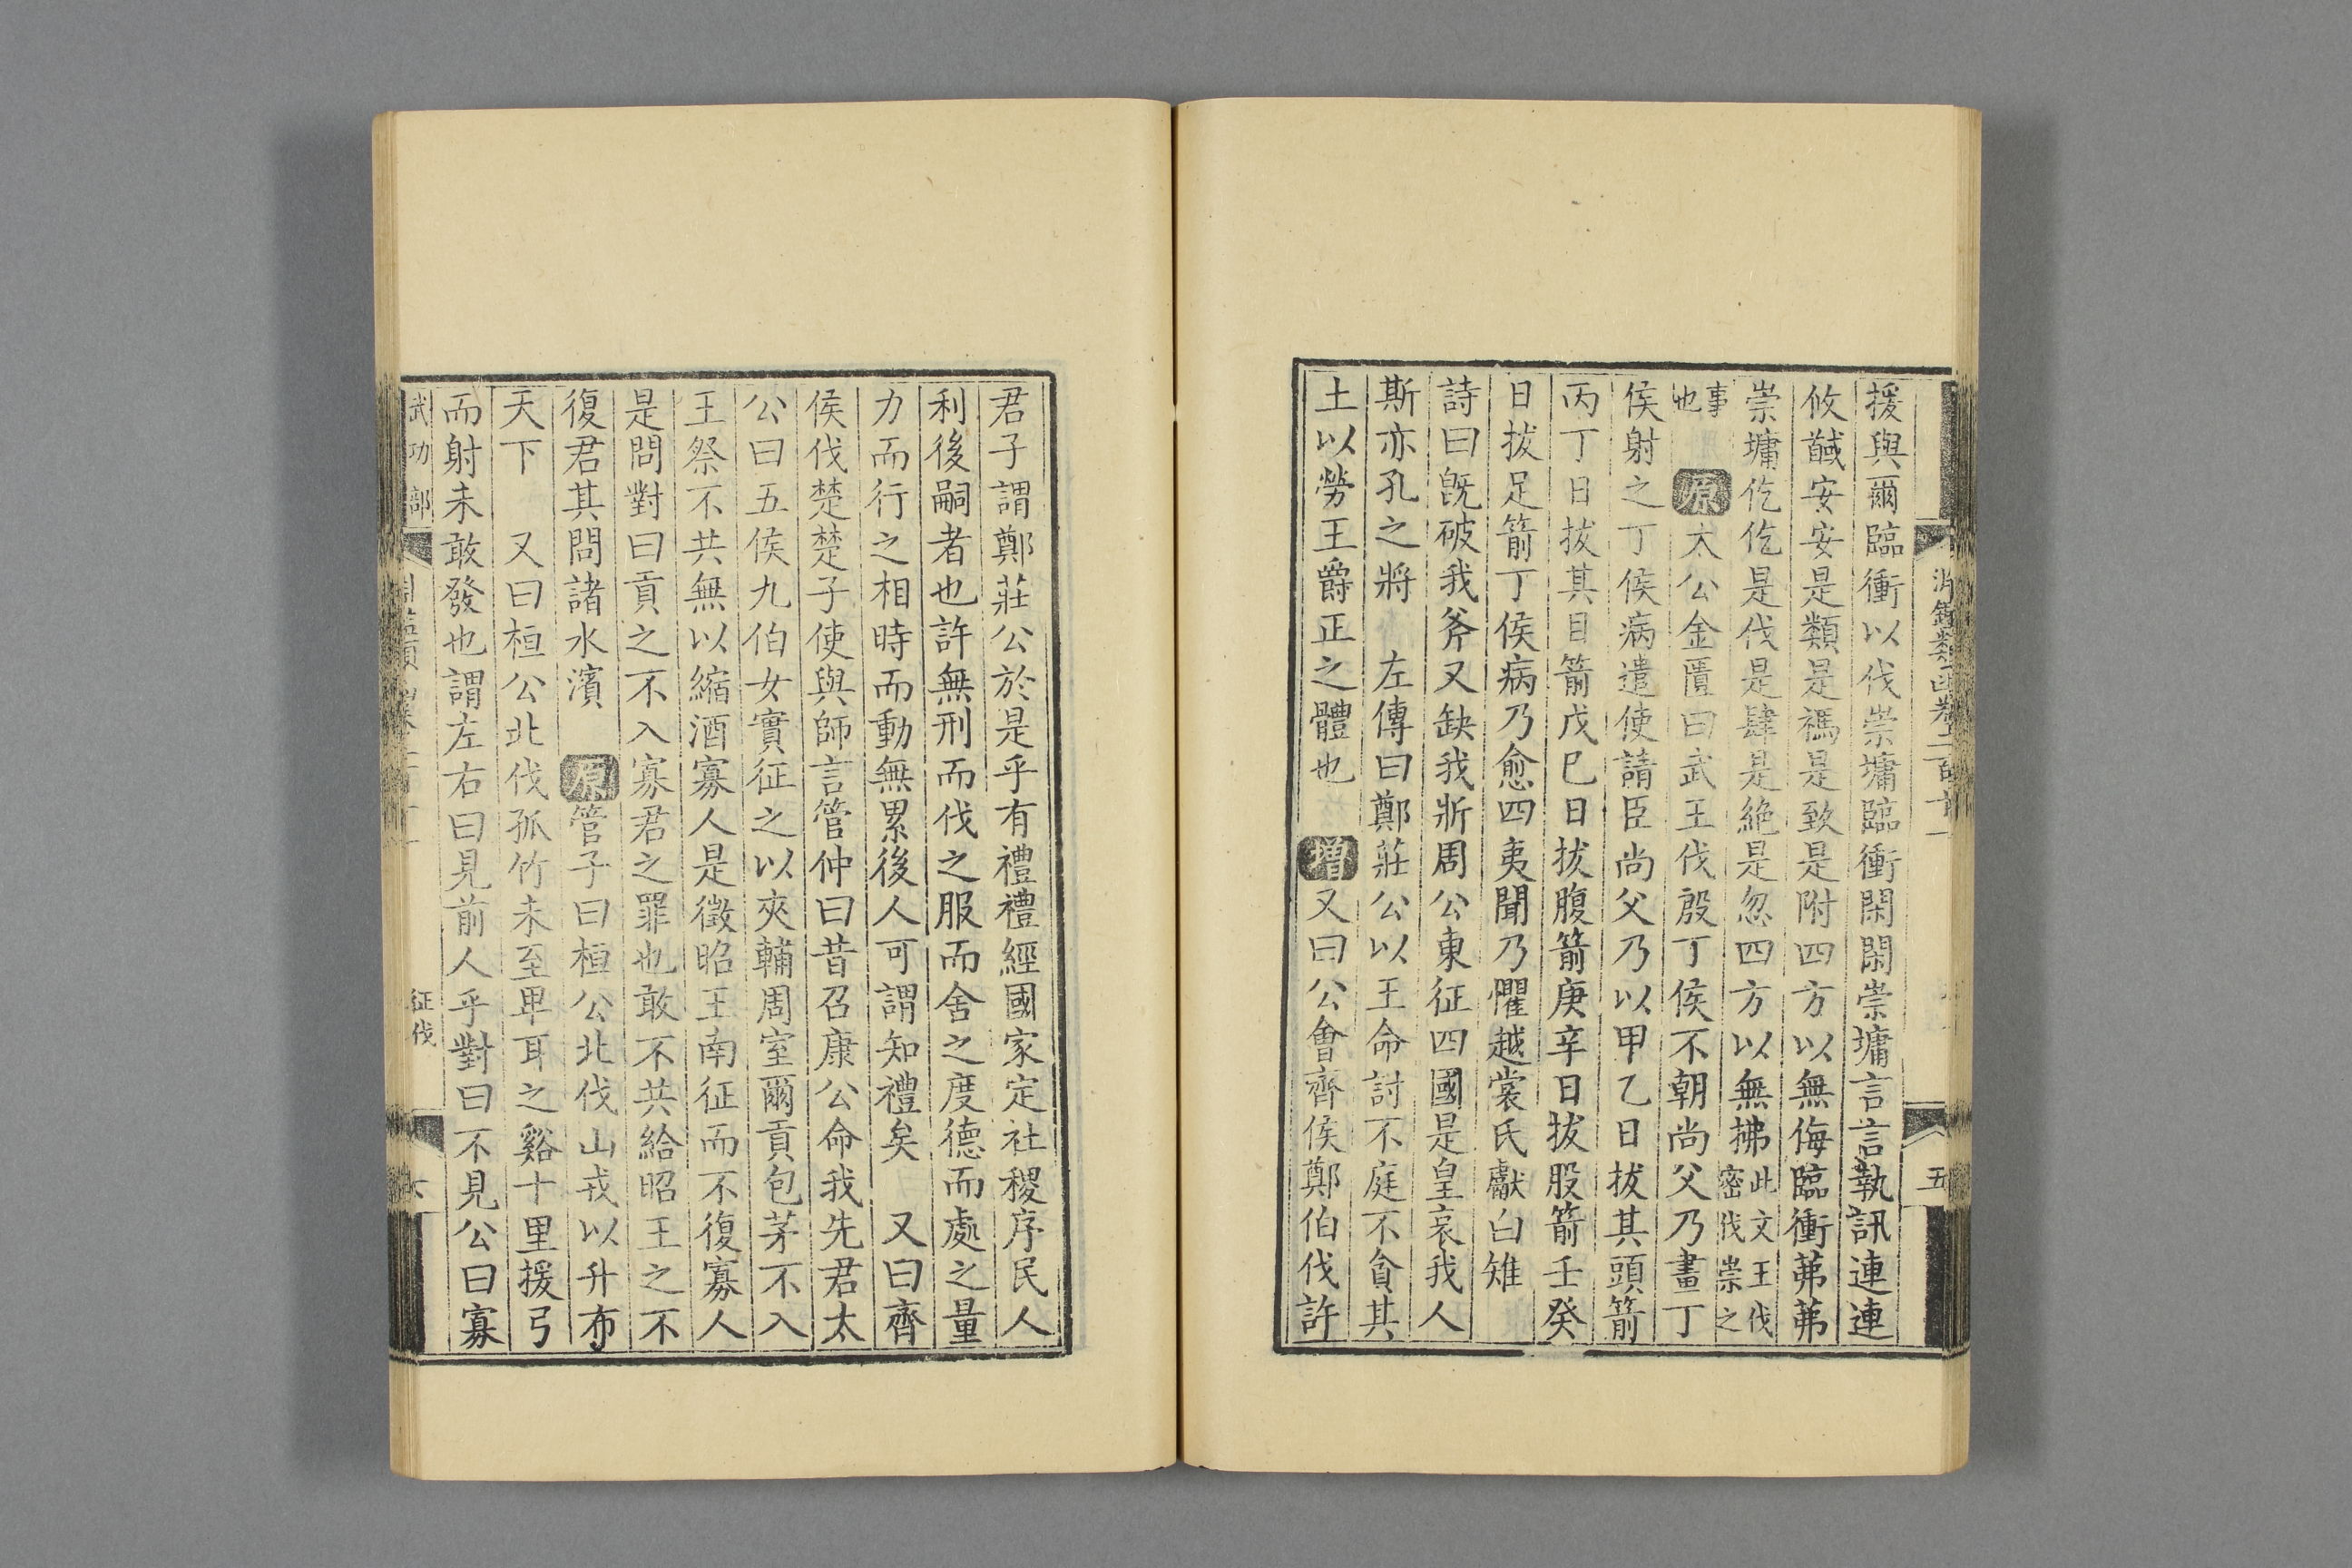 援與爾臨衝以伐崇墉臨衝閑閑崇墉言言執訊連連
攸馘安安是類是禡是致是附四方以無侮臨衝茀茀
崇墉仡仡是伐是肆是絕是忽四方以無拂此文王伐密伐崇之
事也 原太公金匱曰武王伐殷丁侯不朝尚父乃畫丁
侯射之丁侯病遣使請臣尚父乃以甲乙日拔其頭箭
丙丁日拔其目箭戊巳日拔腹箭庚辛日拔股箭壬癸
日拔足箭丁侯病乃愈四夷聞乃懼越裳氏獻白雉
詩曰旣破我斧又缺我斨周公東征四國是皇哀我人
斯亦孔之將 左傳曰鄭莊公以王命討不庭不貪其
土以勞王爵正之體也 增又曰公會齊侯鄭伯伐許
五
君子謂鄭莊公於是乎有禮禮經國家定社稷序民人
利後嗣者也許無刑而伐之服而舍之度德而處之量
力而行之相時而動無累後人可謂知禮矣 又曰齊
侯伐楚楚子使與師言管仲曰昔召康公命我先君太
公曰五侯九伯女實征之以夾輔周室爾貢包茅不入
王祭不共無以縮酒寡人是徵昭王南征而不復寡人
是問對曰貢之不入寡君之罪也敢不共給昭王之不
復君其問諸水濱 原管子曰桓公北伐山戎以升布
天下 又曰桓公北伐孤竹未至卑耳之谿十里援弓
而射未敢發也謂左右曰見前人乎對曰不見公曰寡
武功部 征伐